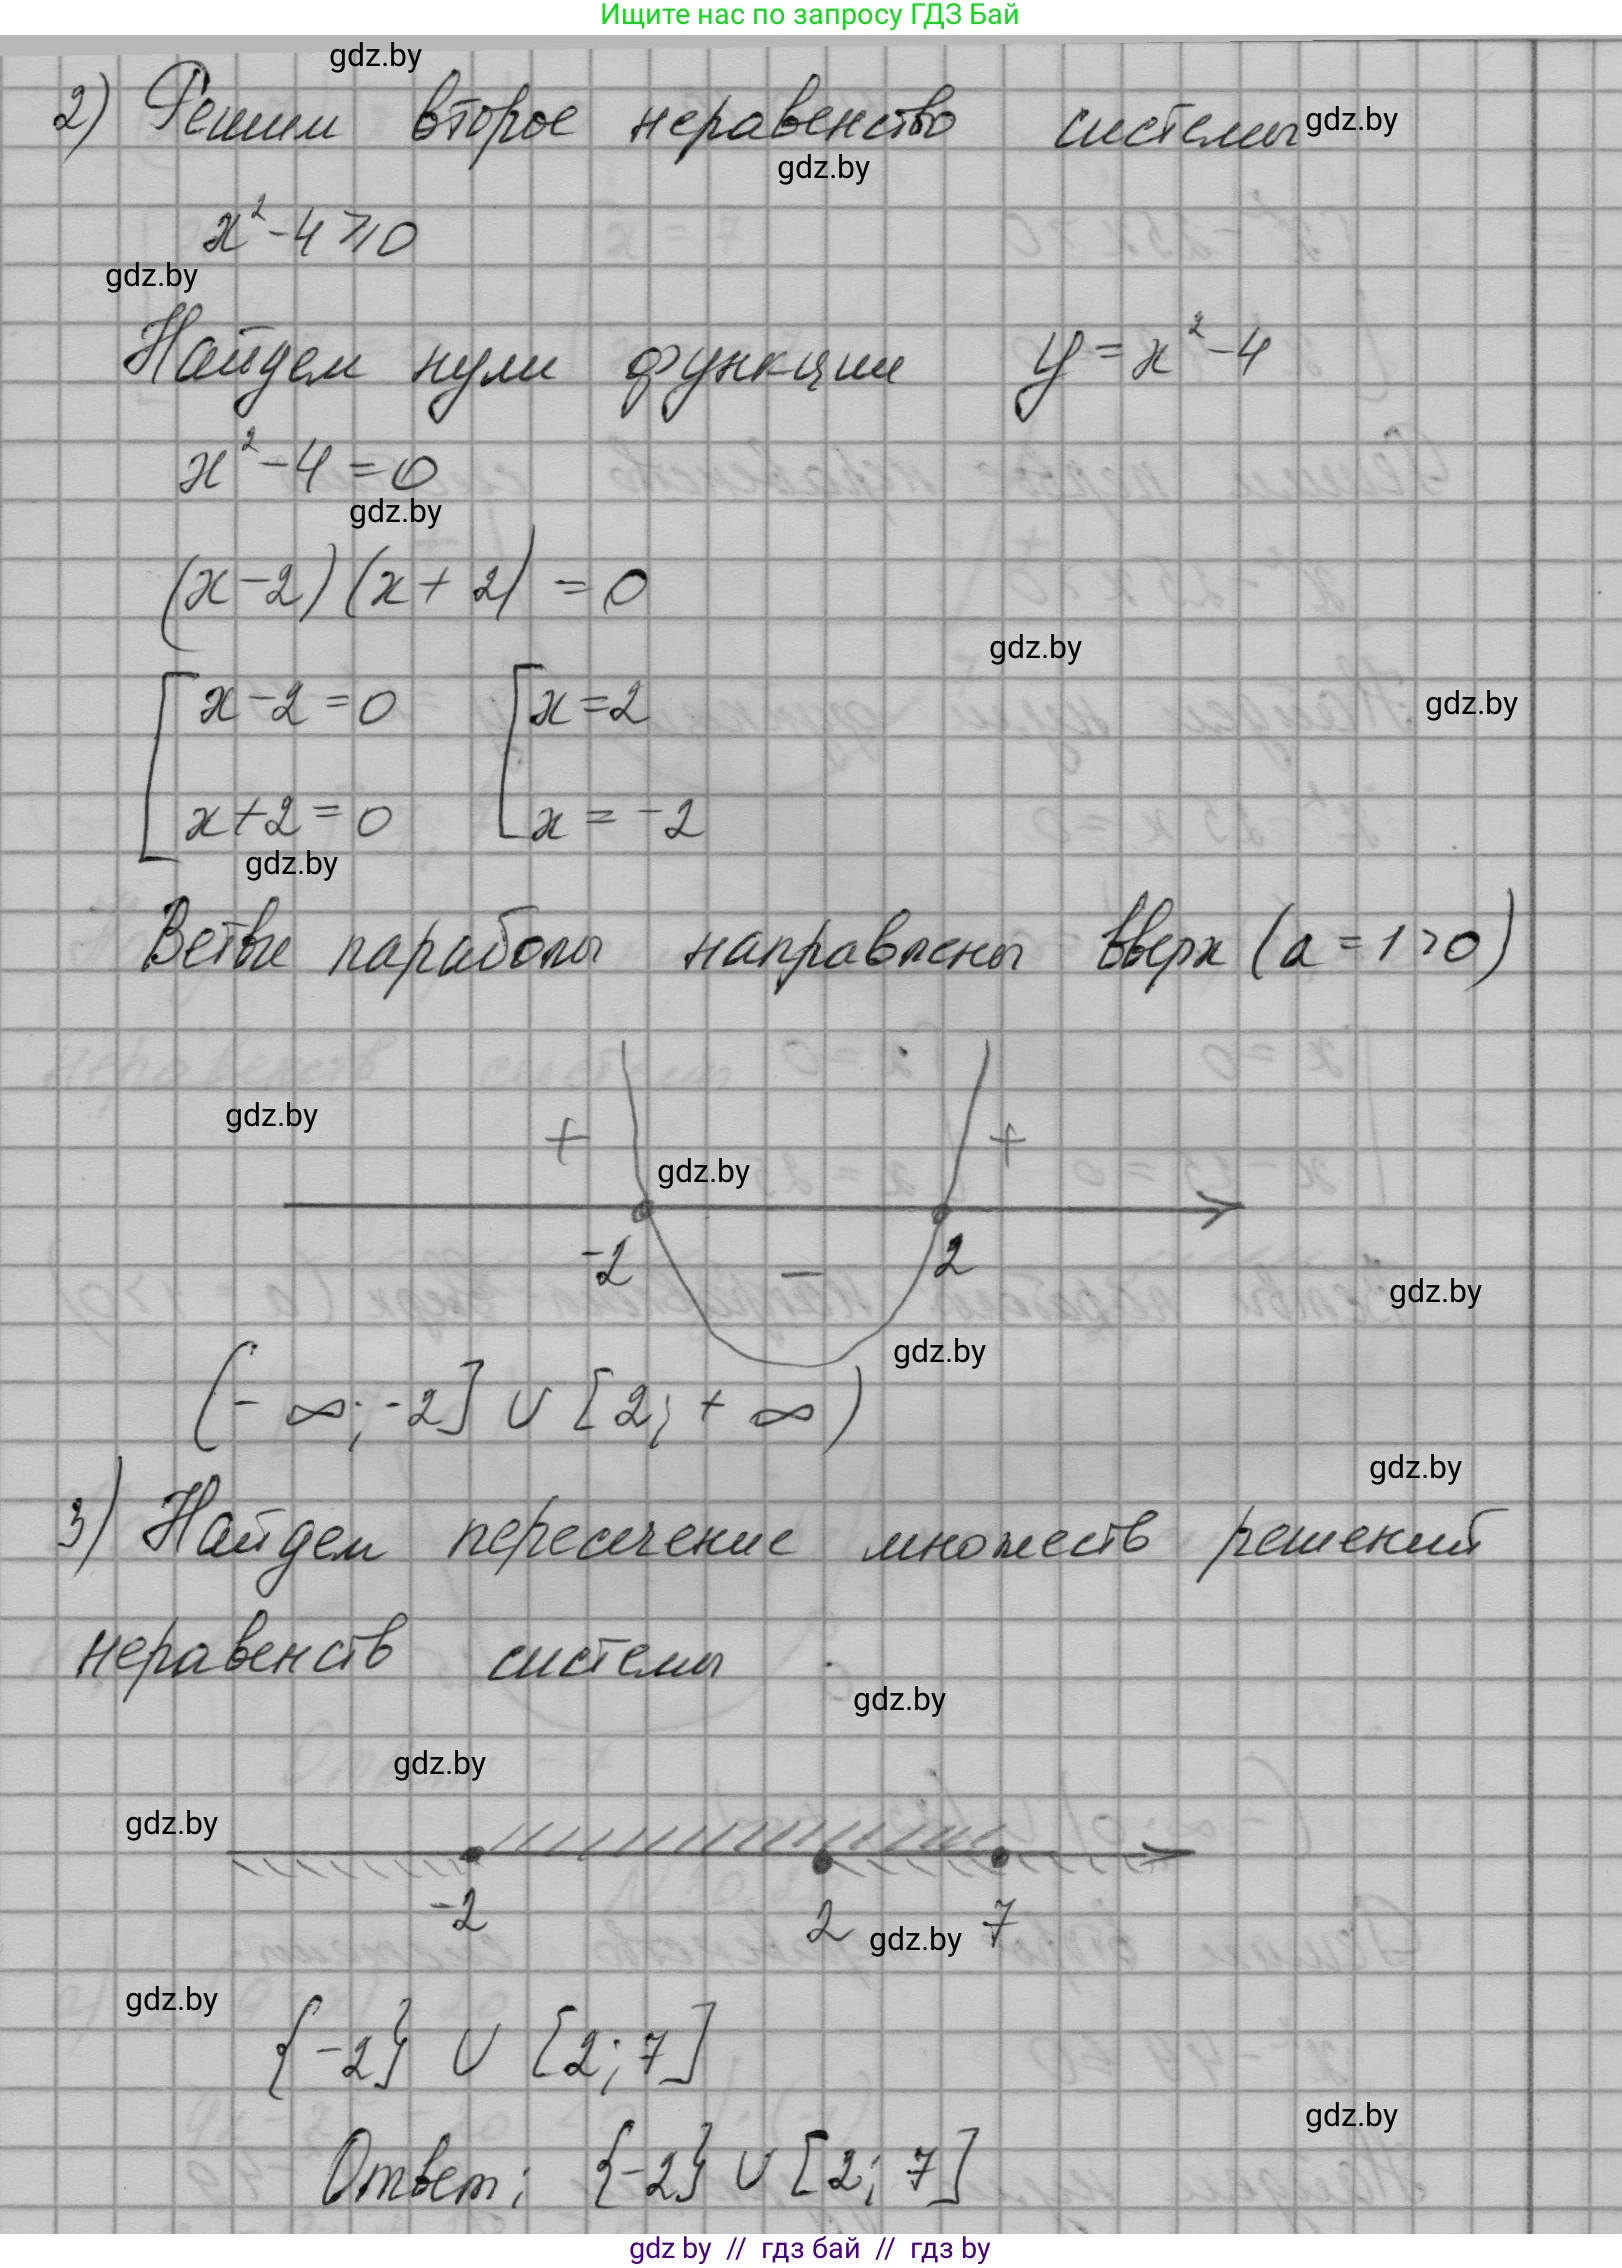 Ищите нас по запросу ГДЗ Бай
gdz.by
2) Решим второе неравенство системы
gdz.by
gdz.by
x²-4⩾0
gdz.by
Найдем нули функции y=x²-4
x²-4=0
gdz.by
(x-2)(x+2)=0
gdz.by
x-2=0 x=2
gdz.by
x+2=0 x=-2
gdz.by
Ветви параболы направлены вверх (a=1>0)
gdz.by
+ +
gdz.by
-2 2
-
gdz.by
gdz.by
(-∞;-2]∪[2;+∞)
gdz.by
3) Найдем пересечение множеств решений
неравенств системы
gdz.by
gdz.by
gdz.by
-2 2 7
gdz.by
gdz.by
{-2} ∪ [2;7]
gdz.by
Ответ: {-2}∪[2;7]
gdz by // гдз бай // гдз by